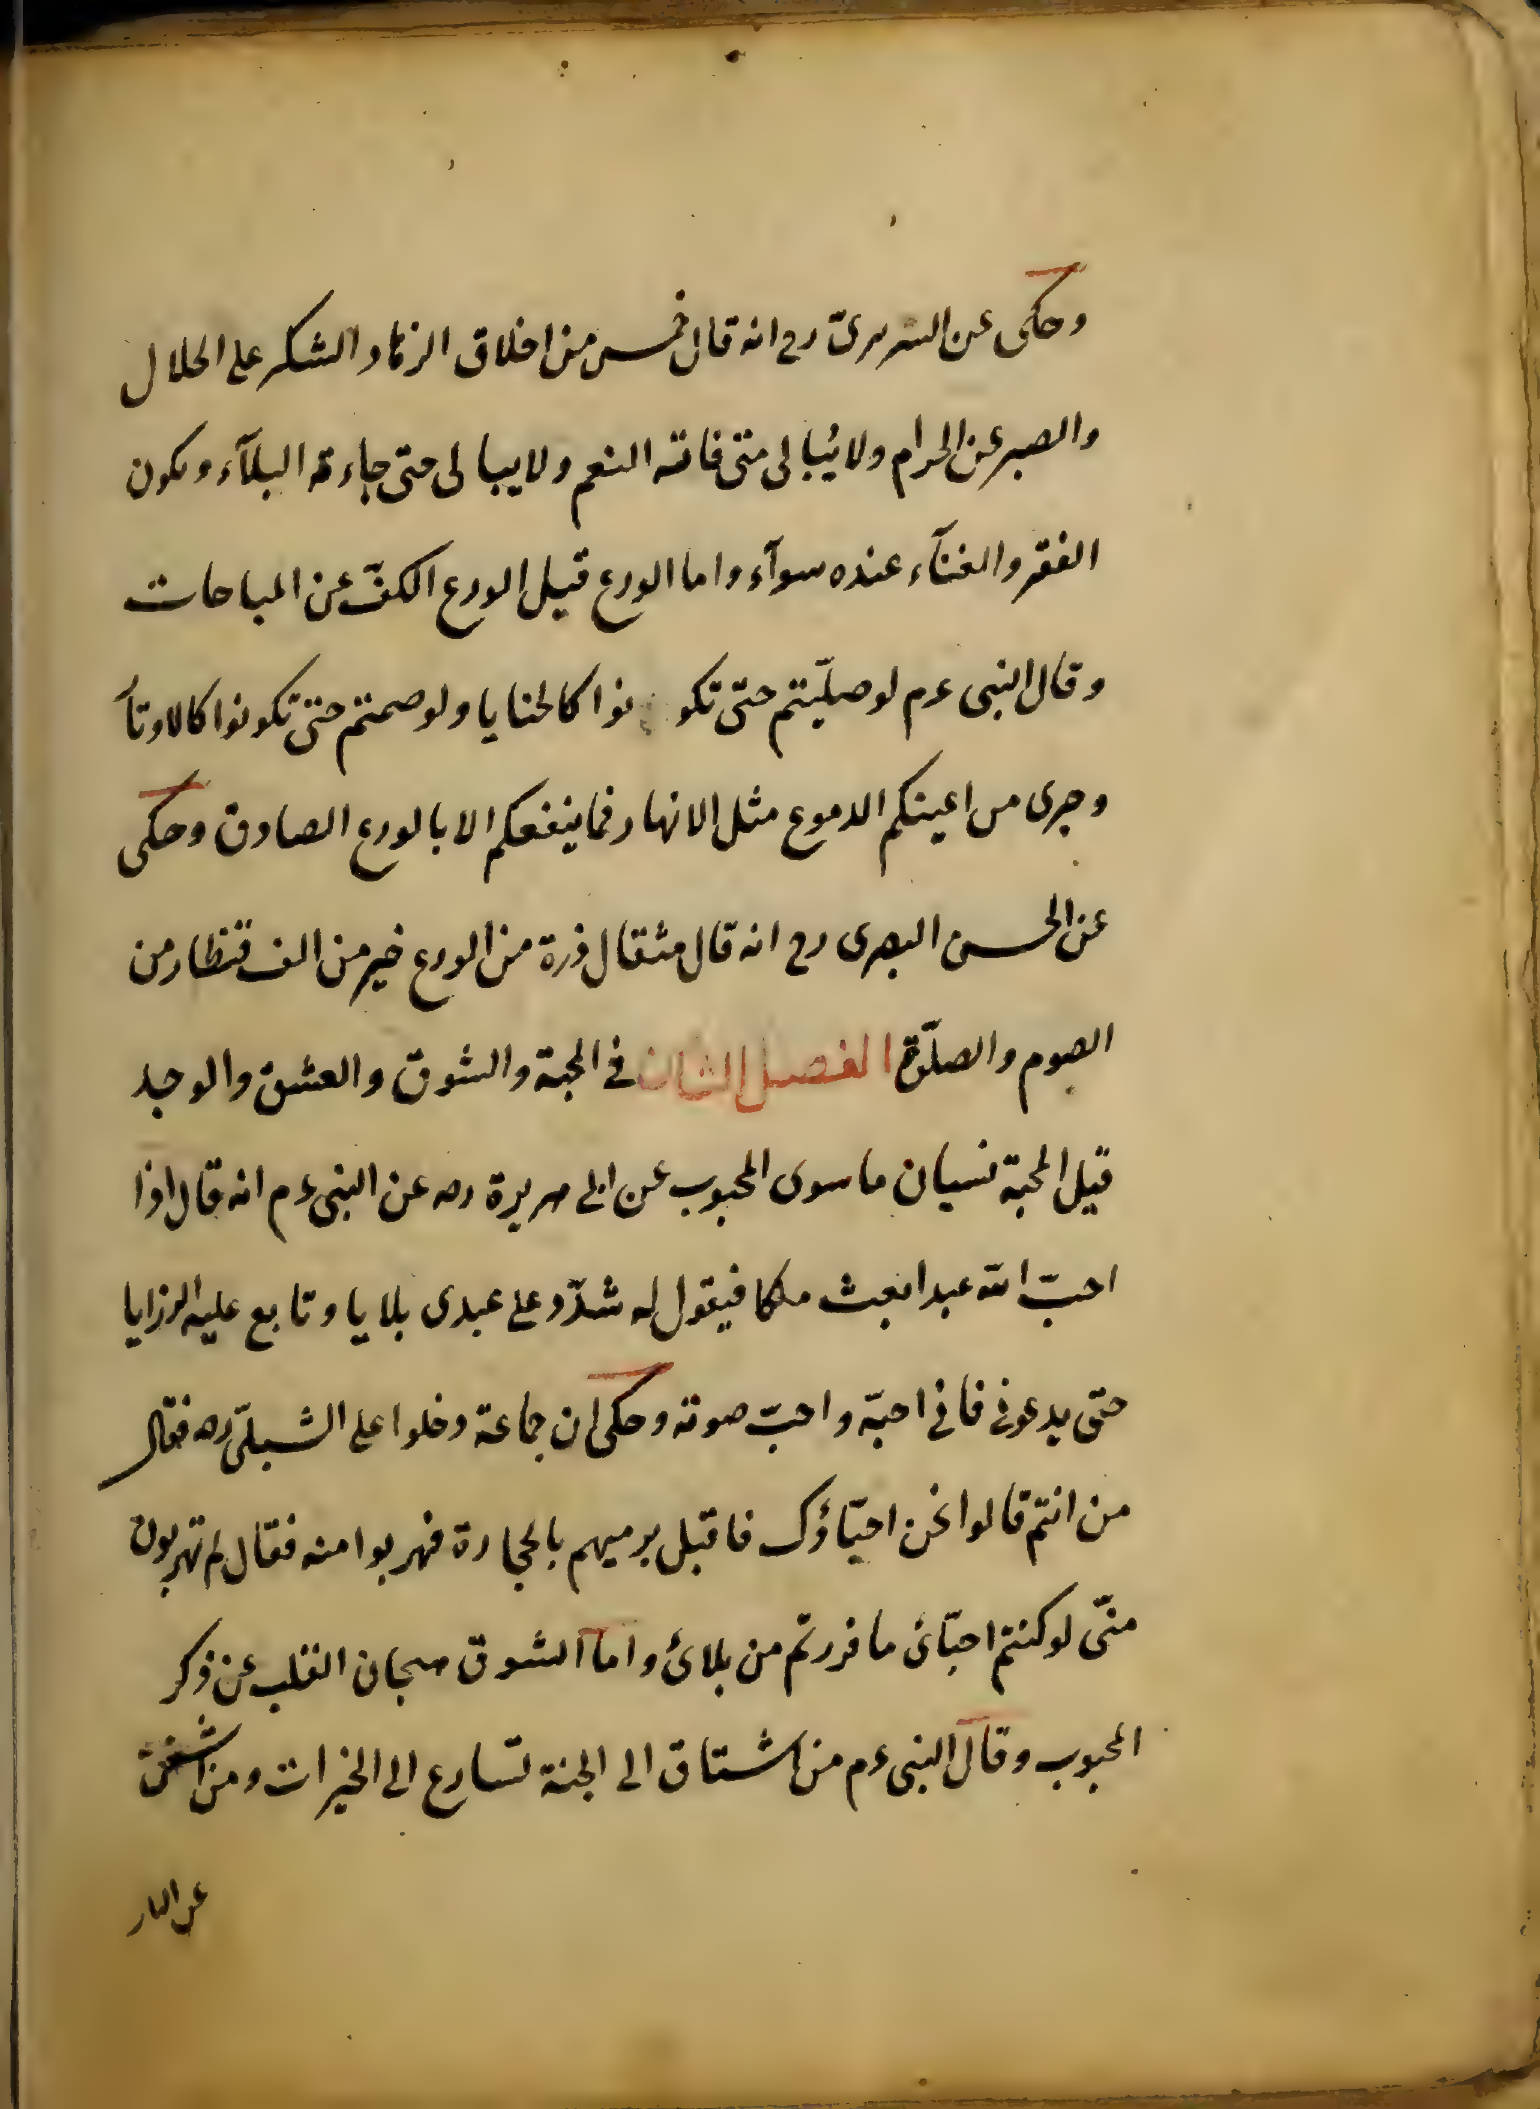 وحكى عن السرىّ رح انه قال خمس من اخلاق الزهاد الشكر على الحلال
والصبر عن الحرام ولا يُبالى متى فاته النعم ولا يبالى متى جاءته البلآء ويكون
الفقر والغنآء عنده سوآء واما الورع قيل الورع الكفّ عن المباحات
وقال النبى عم لو صليّتم حتّى تكو نوا كالحنايا ولو صمتم حتى تكونوا كالاوتاُ
وجرى من اعينكم الدموع مثل الانهار فما ينفعكم الا بالورع الصادق وحكى
عن الحسن البصرى رح انه قال مثقال ذرة من الورع خير من الف قنطار من
الصوم والصلوّة الفصل الثانى فى المحبة والشوق والعشق والوجد
قيل المحبة نسيان ما سوى المحبوب عن ابى هريرة رضه عن النبى عم انه قال اذا
احبّ الله عبدا بعث ملكا فيقول له شدّد على عبدى بلايا وتابع عليه الرزايا
حتى يدعونى فانى احبّه واحبّ صوته وحكى ان جماعة دخلوا على الشبلىّ رحه فقال
من انتم قالوا نحن احبّاؤك فاقبل يرميهم بالحجارة فهربوا منه فقال لم تهربون
منّى لو كنتم احبّائ ما فررتم من بلائ واما الشوق هيجان القلب عن ذكر
المحبوب وقال النبى عم من اشتاق الى الجنة تسارع الى الخيرات ومن اشفق
عن النار